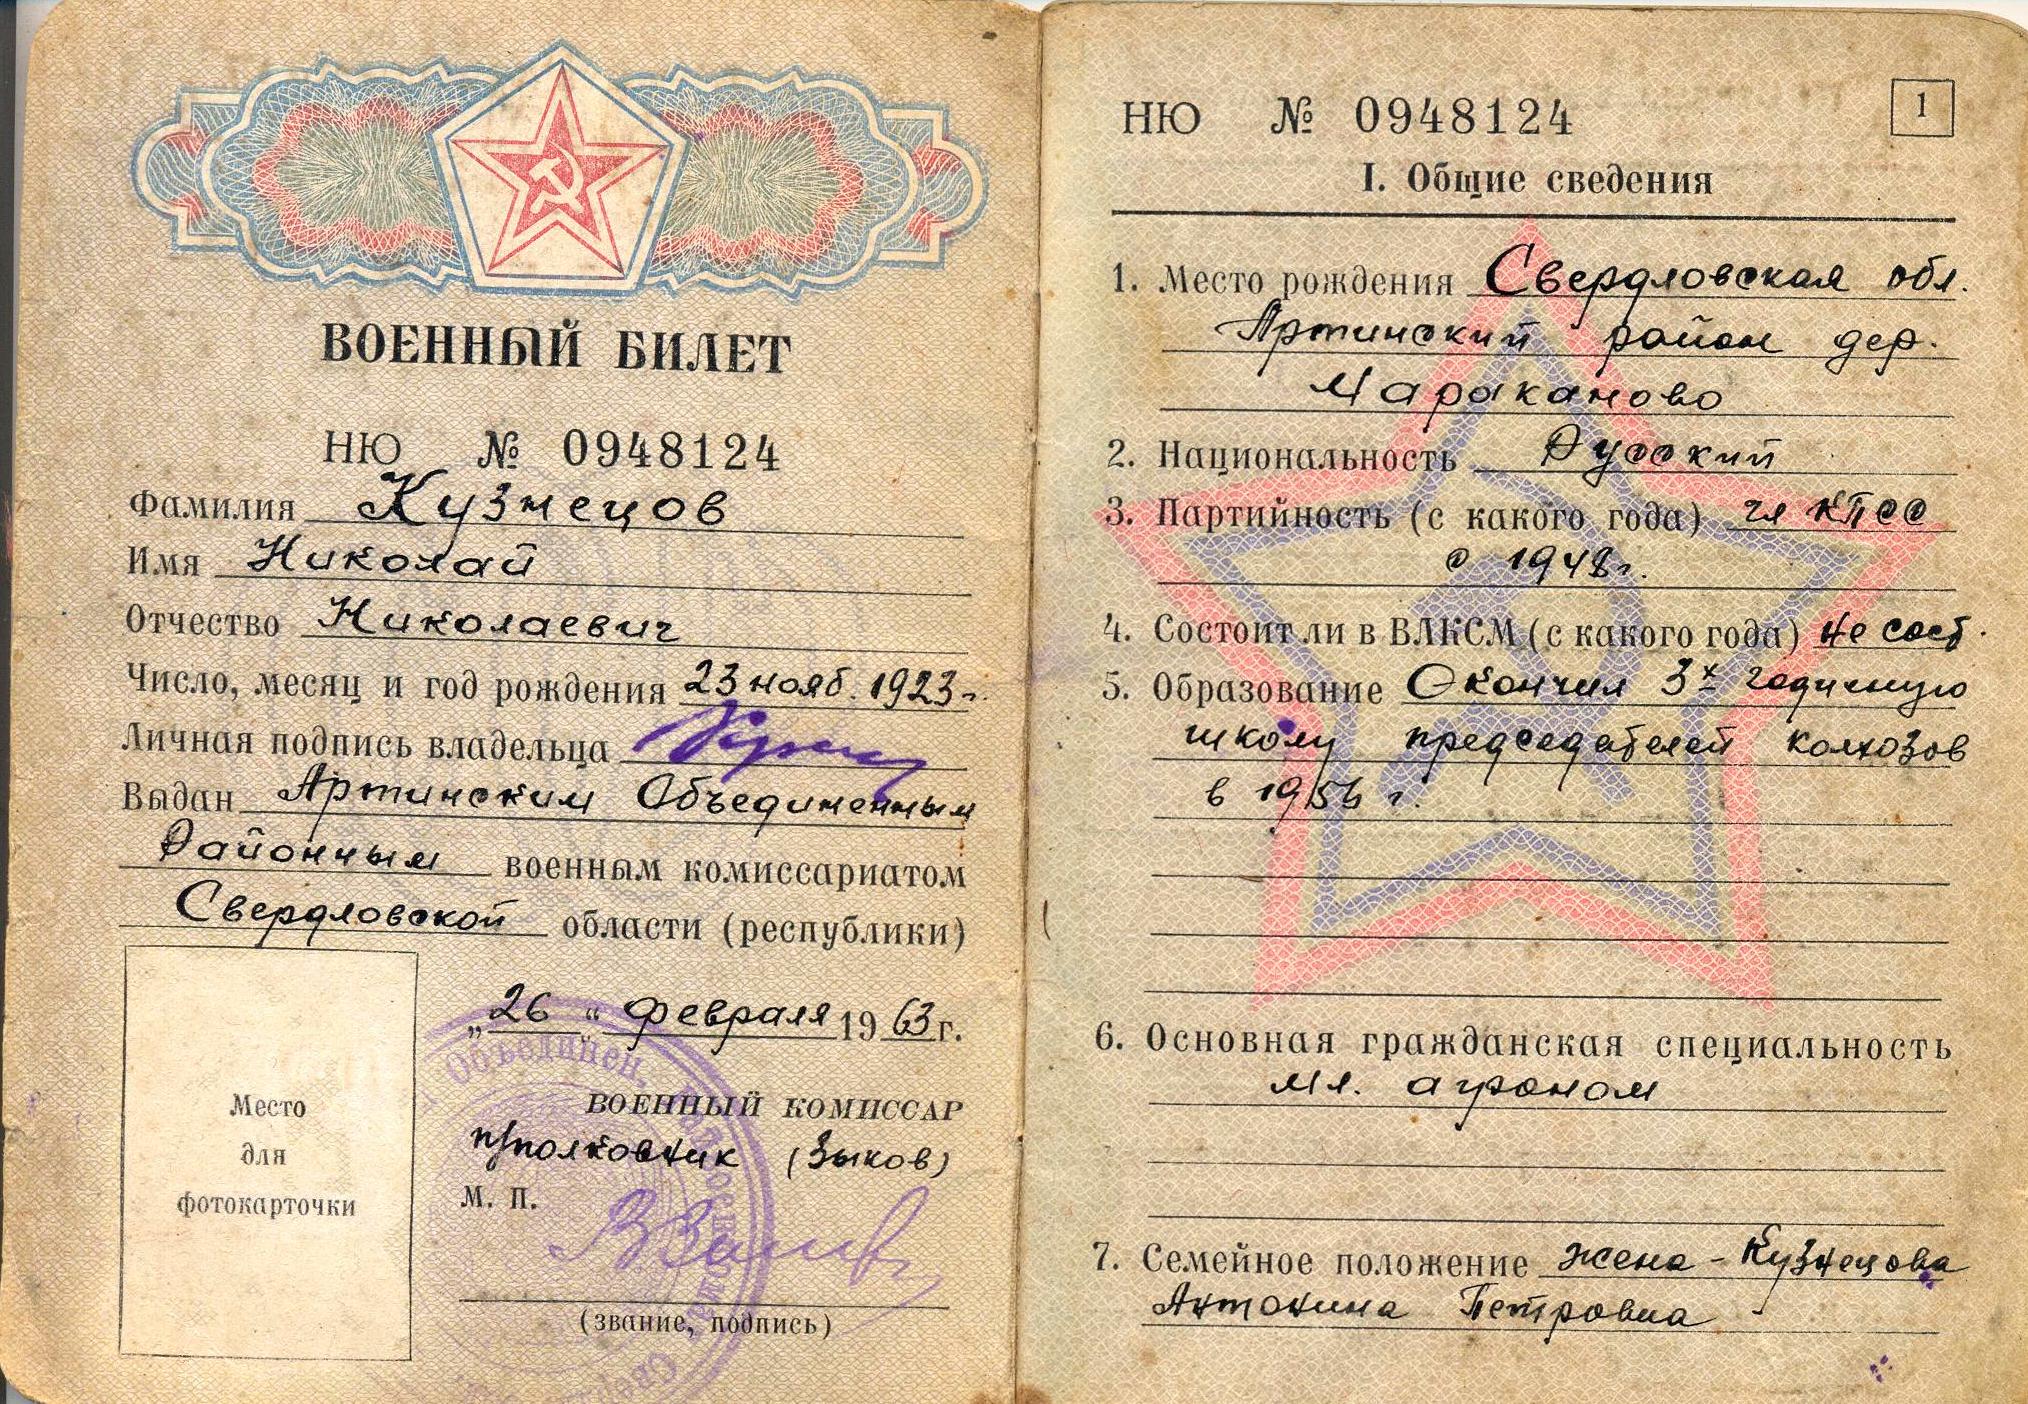 ВОЕННЫЙ БИЛЕТ
НЮ № 0948124
Фамилия Кузнецов
Имя Николай
Отчество Николаевич
Число, месяц и год рождения 23 нояб. 1923 г.
Личная подпись владельца
Выдан Артинским Объединенным
Районным военным комиссариатом
Свердловской области (республики)
„26“ февраля 1963 г.
Место
для
фотокарточки
ВОЕННЫЙ КОМИССАР
п/полковник (Зыков)
М. П.
(звание, подпись)
Объединен.
НЮ № 0948124
1
I. Общие сведения
1. Место рождения Свердловская обл.
Артинский район дер.
Мараканово
2. Национальность Русский
3. Партийность (с какого года) чл КПСС
с 1948 г.
4. Состоит ли в ВЛКСМ (с какого года) не сост.
5. Образование Окончил 3х годичную
школу председателей колхозов
в 1956 г.
6. Основная гражданская специальность
мл. агроном
7. Семейное положение жена - Кузнецова
Антонина Петровна